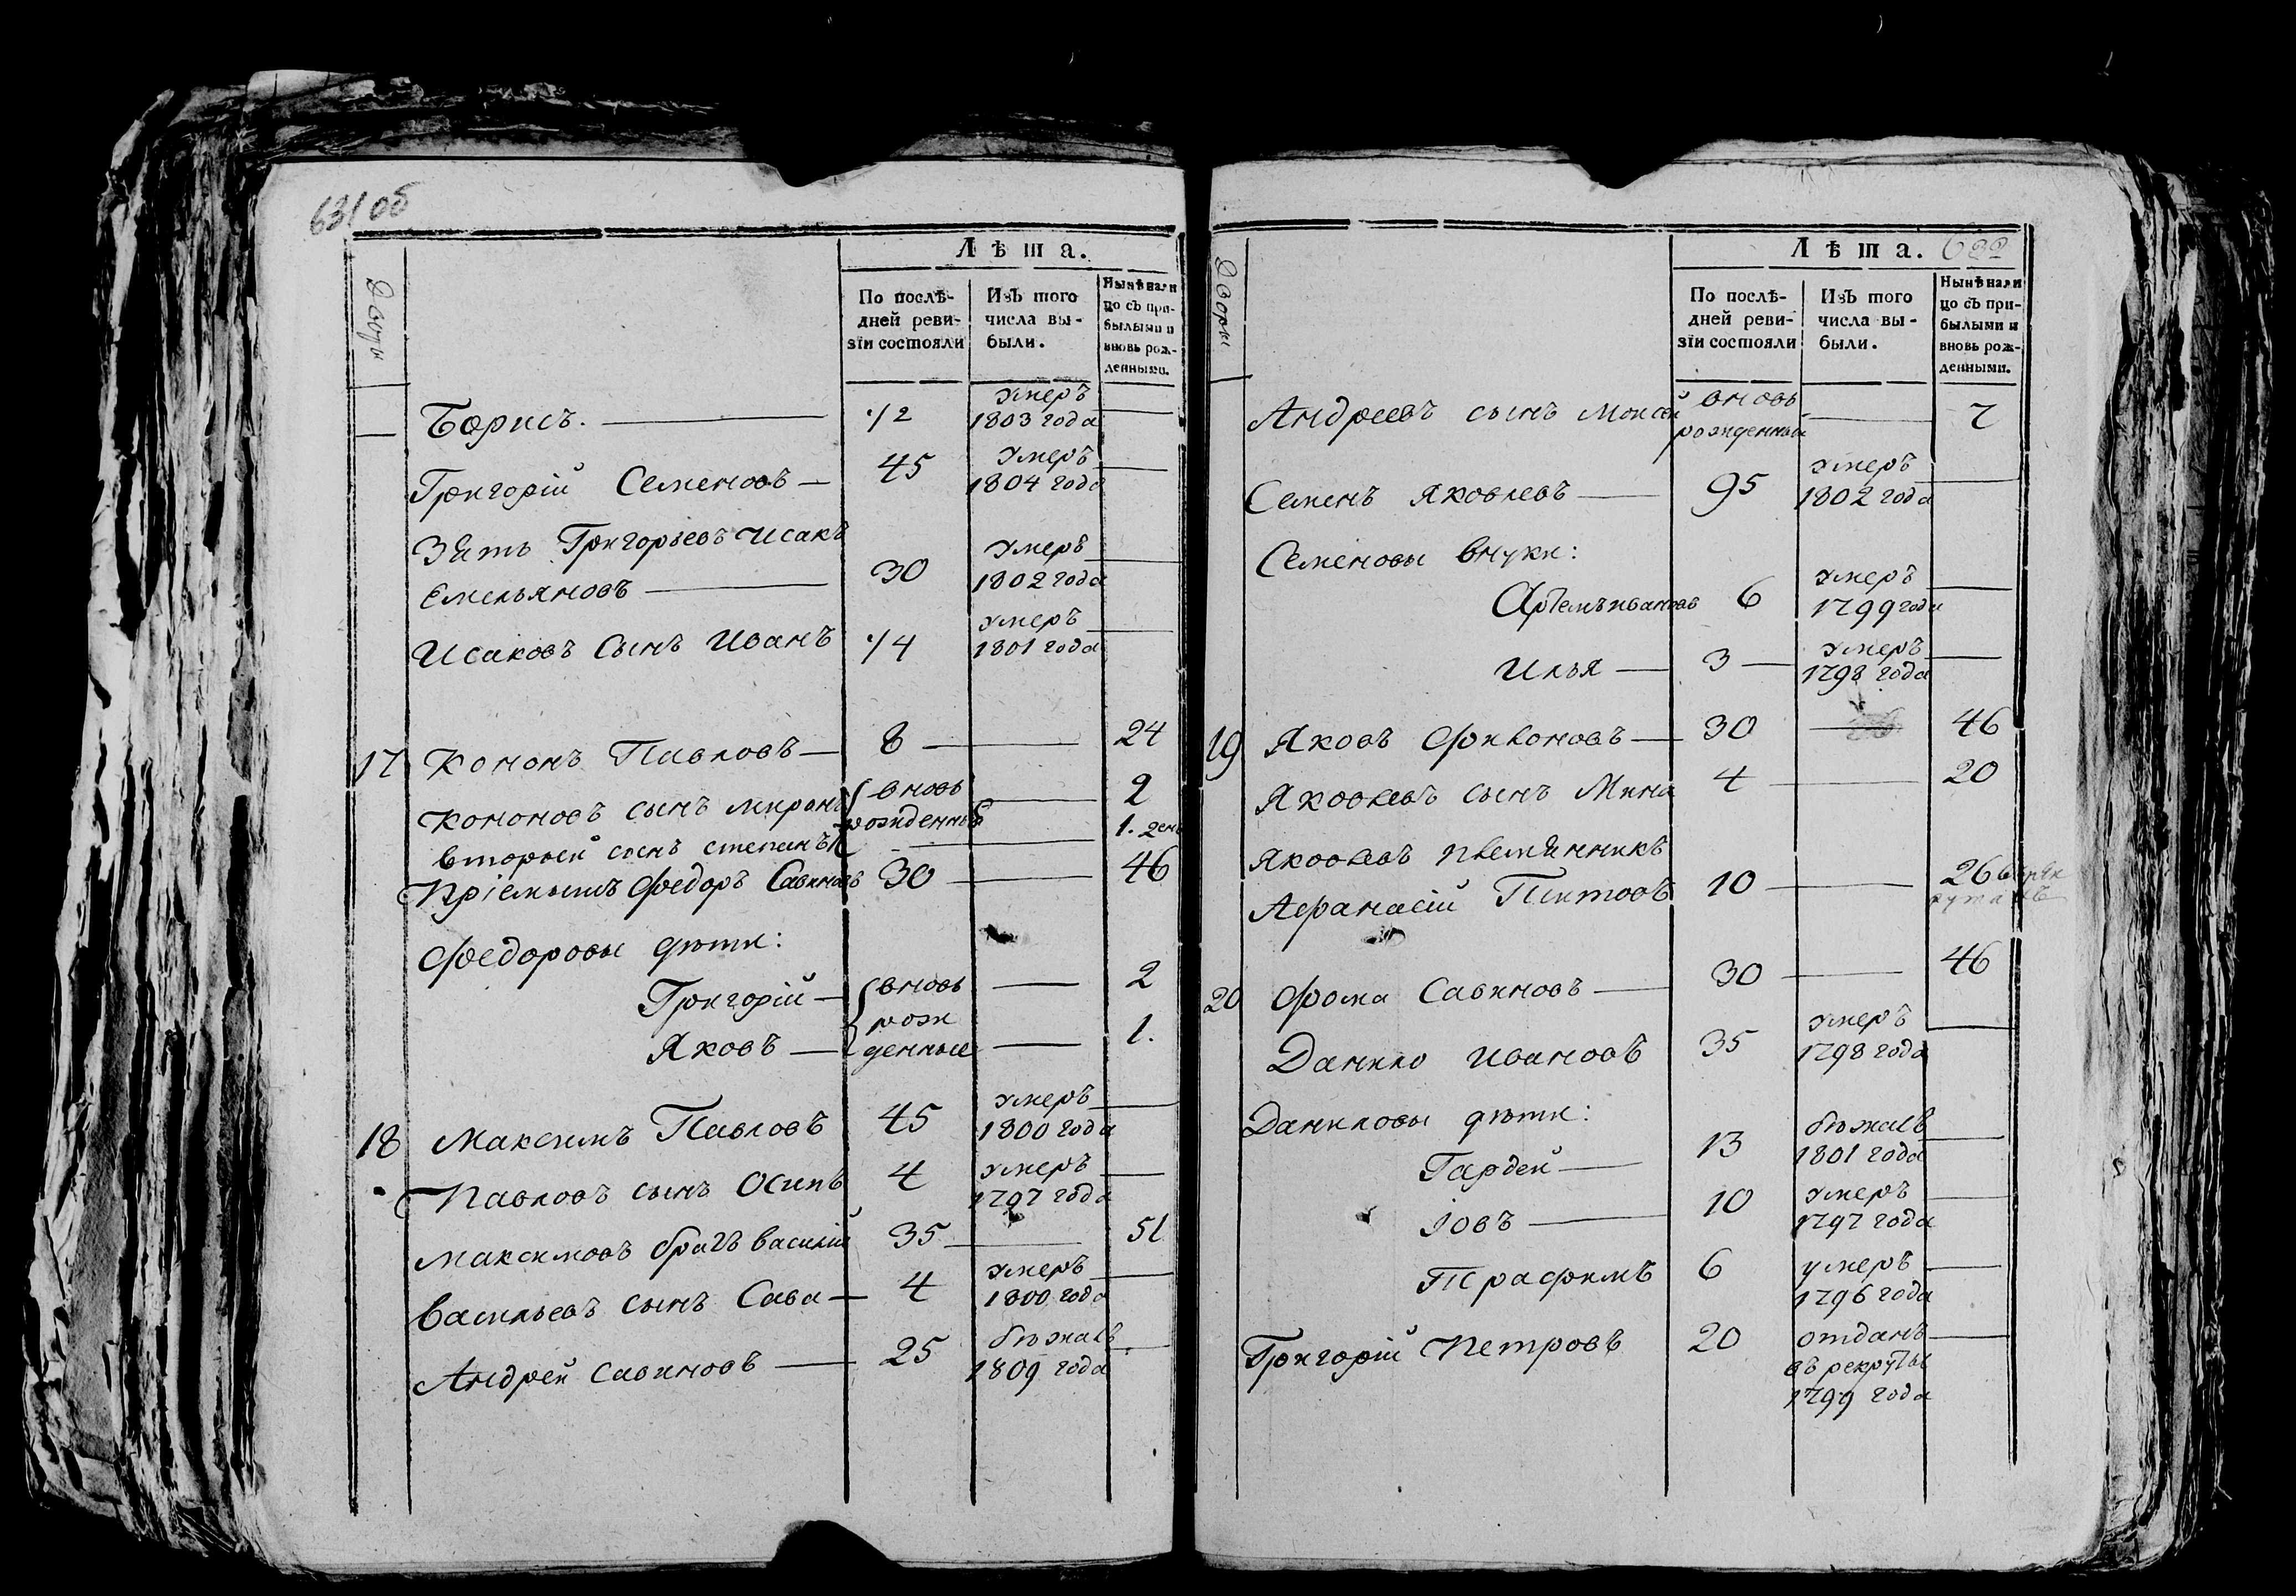 631 об
Дворы
Лѣта.
По послѣ-
дней реви-
зїи состояли
Изъ того
числа вы-
были.
Нынѣ нали
цо съ при-
былыми и
вновь рож-
денными.
Борисъ. 1/2 умеръ
1803 года
Григорій Семеновъ 45 умеръ
1804 года
Зять Григорьевъ Исакъ
Емельяновъ 30 умеръ
1802 года
Исаковъ сынъ Иванъ 1/4 умеръ
1801 года
17 Кононъ Павловъ 8 24
Кононовъ сынъ Миронъ вновь
рожденный 2
второй сынъ степанъ 1. день
Пріемышъ Федоръ Савиновъ 30 46
Федоровы дѣти:
Григорій вновь 2
рож
Яковъ денные 1.
18 Максимъ Павловъ 45 умеръ
1800 года
Павловъ сынъ Осипъ 4 умеръ
1797 года
Максимовъ братъ василій 35 51
Васильевъ сынъ Сава 4 умеръ
1800 года
Андрей Савиновъ 25 бѣжалъ
1809 года
632
Дворы
Лѣта.
По послѣ-
дней реви-
зїи состояли
Изъ того
числа вы-
были.
Нынѣ нали
цо съ при-
былыми и
вновь рож-
денными.
Андреевъ сынъ Моисей вновь
рожденный 7
Семенъ Яковлевъ 95 умеръ
1802 года
Семеновы внуки:
Артемъ ивановъ 6 умеръ
1799 года
Илья 3 умеръ
1798 года
19 Яковъ Филоновъ 30 46
Яковлевъ сынъ Мина 4 20
Яковлевъ племянникъ
Афанасій Титовъ 10 26 въ рек
рутахъ
20 Фома Савиновъ 30 46
Данило Ивановъ 35 умеръ
1798 года
Даниловы дѣти:
Гордей 13 бѣжалъ
1801 года
Іовъ 10 умеръ
1797 года
Трафимъ 6 умеръ
1796 года
Григорій Петровъ 20 отданъ
въ рекруты
1799 года